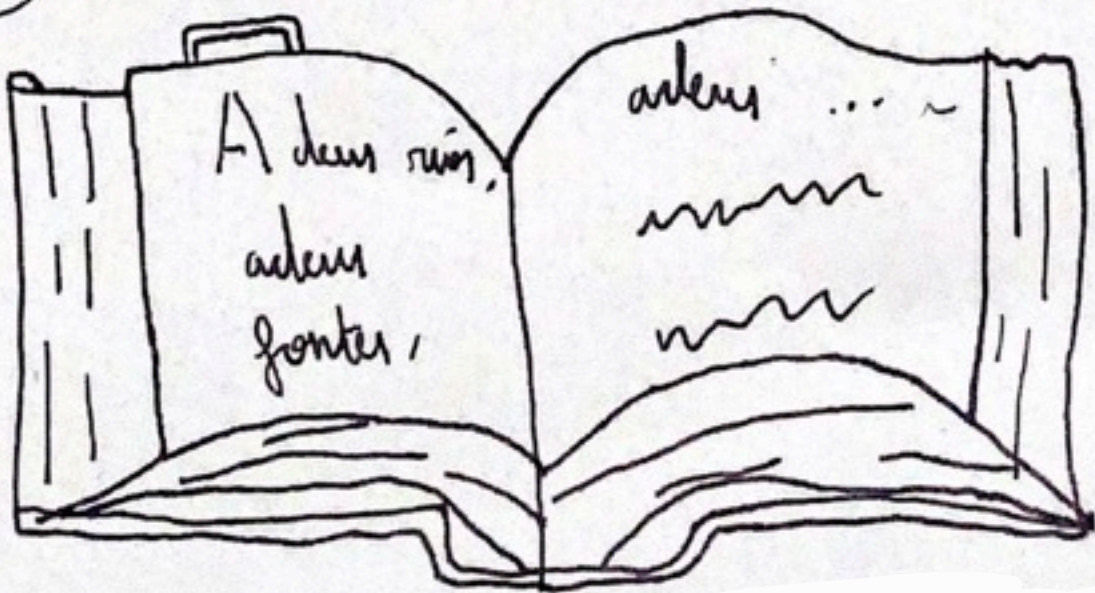 A deus ríos,
adeus
fontes,
adeus ...